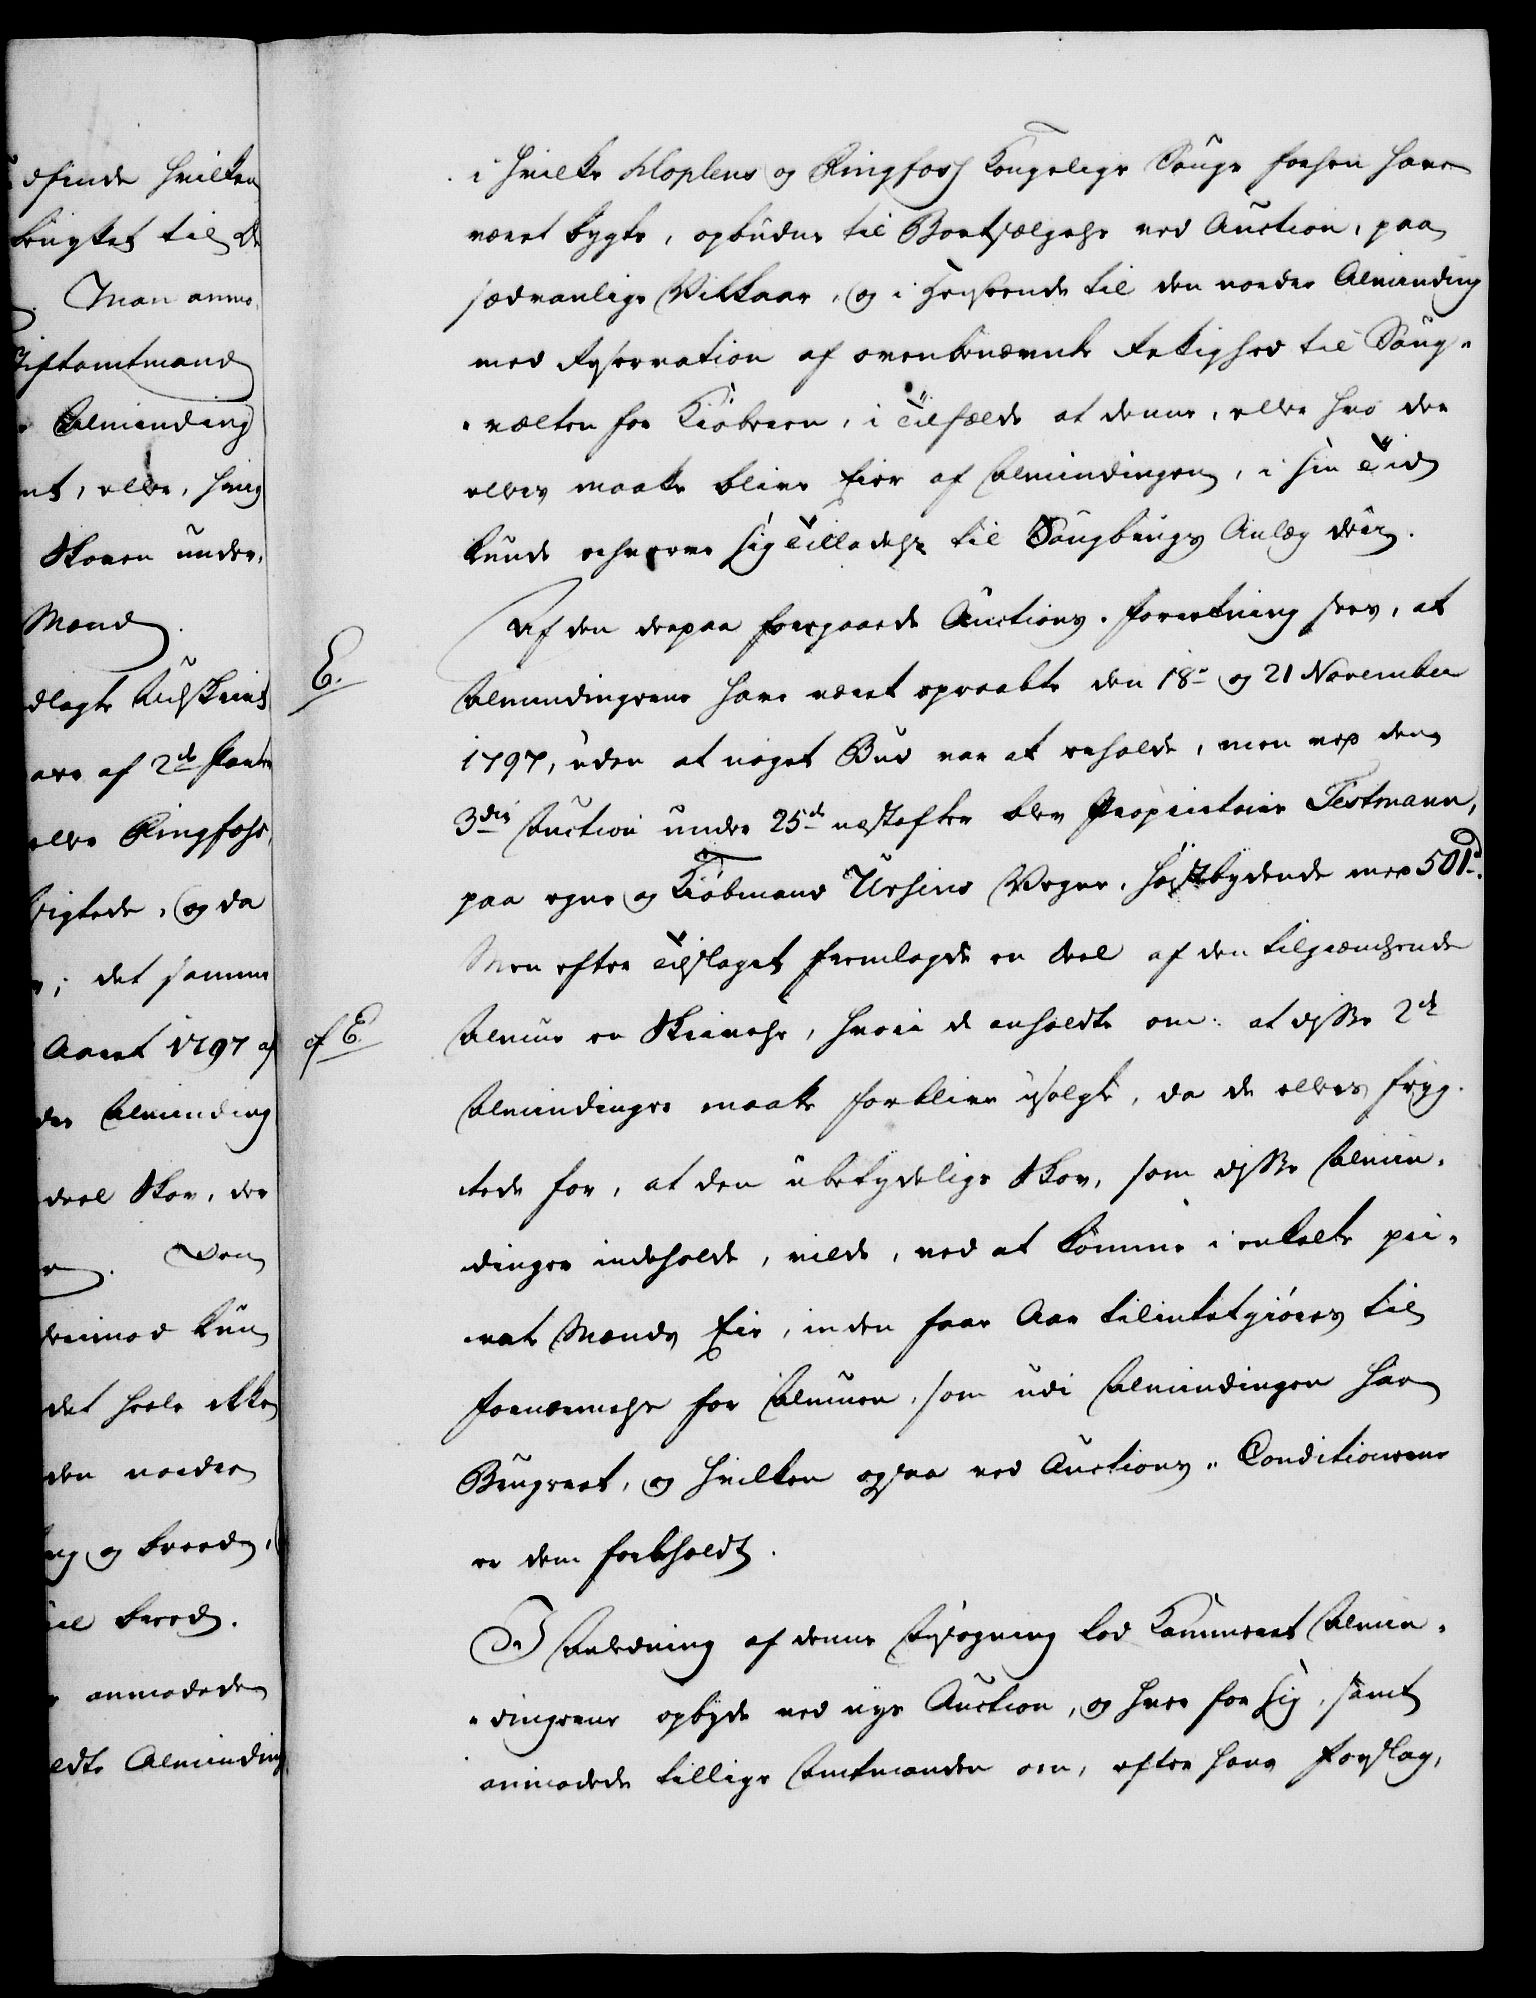 dfinde hvilken
brugtet til de
Man anmo-
Stiftamtmand
Alminding
nt, eller, hvis
Skoven under,
Mand.
dlagte Udskrivt
are af 2de Parter
eller Ringfoss,
sigtede, og da
; det samme
Aaret 1797 af
der Alminding
deel Skov, der
Den
derimod kun
det heele ikke
den nordre
og breed,
til breed.
anmodede
ldte Alminding
i hvilke Kloplens og Ringfoss Kongelige Sauge forhen have
været bygte, opbudne til Bortsælgelse ved Auction, paa
sædvanlige Vilkaar, og i Henseende til den nordre Alminding
med Reservation af ovenbenævnte Rettighed til Saug-
vælten for Kiøberen, i Tilfælde at denne, eller hvo der
ellers maatte blive Eier af Almindingen, i sin Tid
kunde erhverve sig Tilladelse til Saugbrugs Anlæg der.
E.
Af den derpaa foregaaede Auctions-Forretning sees, at
Almindingerne have været opraabte den 18de og 21 November
1797, uden at noget Bud var at erholde, men ved den
3die Auction under 25de næstefter blev Proprietair Testmann,
paa egne og Kiøbmand Ursins Vegne, høistbydende med 501rd.
Men efter Tilslaget fremlagde en Deel af den tilgrændsende
cf E.
Almue en Skrivelse, hvori de anholdte om: at disse 2de
Almindinger maatte forblive usolgte, da de ellers fryg-
tede for, at den ubetydelige Skov, som disse Almin-
dinger indeholde, vilde, ved at komme i enkelte pri-
vate Mænds Eie, inden faae Aar tilintetgiøres til
Fornærmelse for Almuen, som udi Almindingen har
Brugsret, og hvilken ogsaa ved Auctions-Conditionerne
er dem forbeholdt.
I Anledning af denne Ansøgning lod Kammeret Almin-
dingerne opbyde ved nye Auction, og hver for sig, samt
anmodede tillige Amtmanden om, efter hans Forslag,